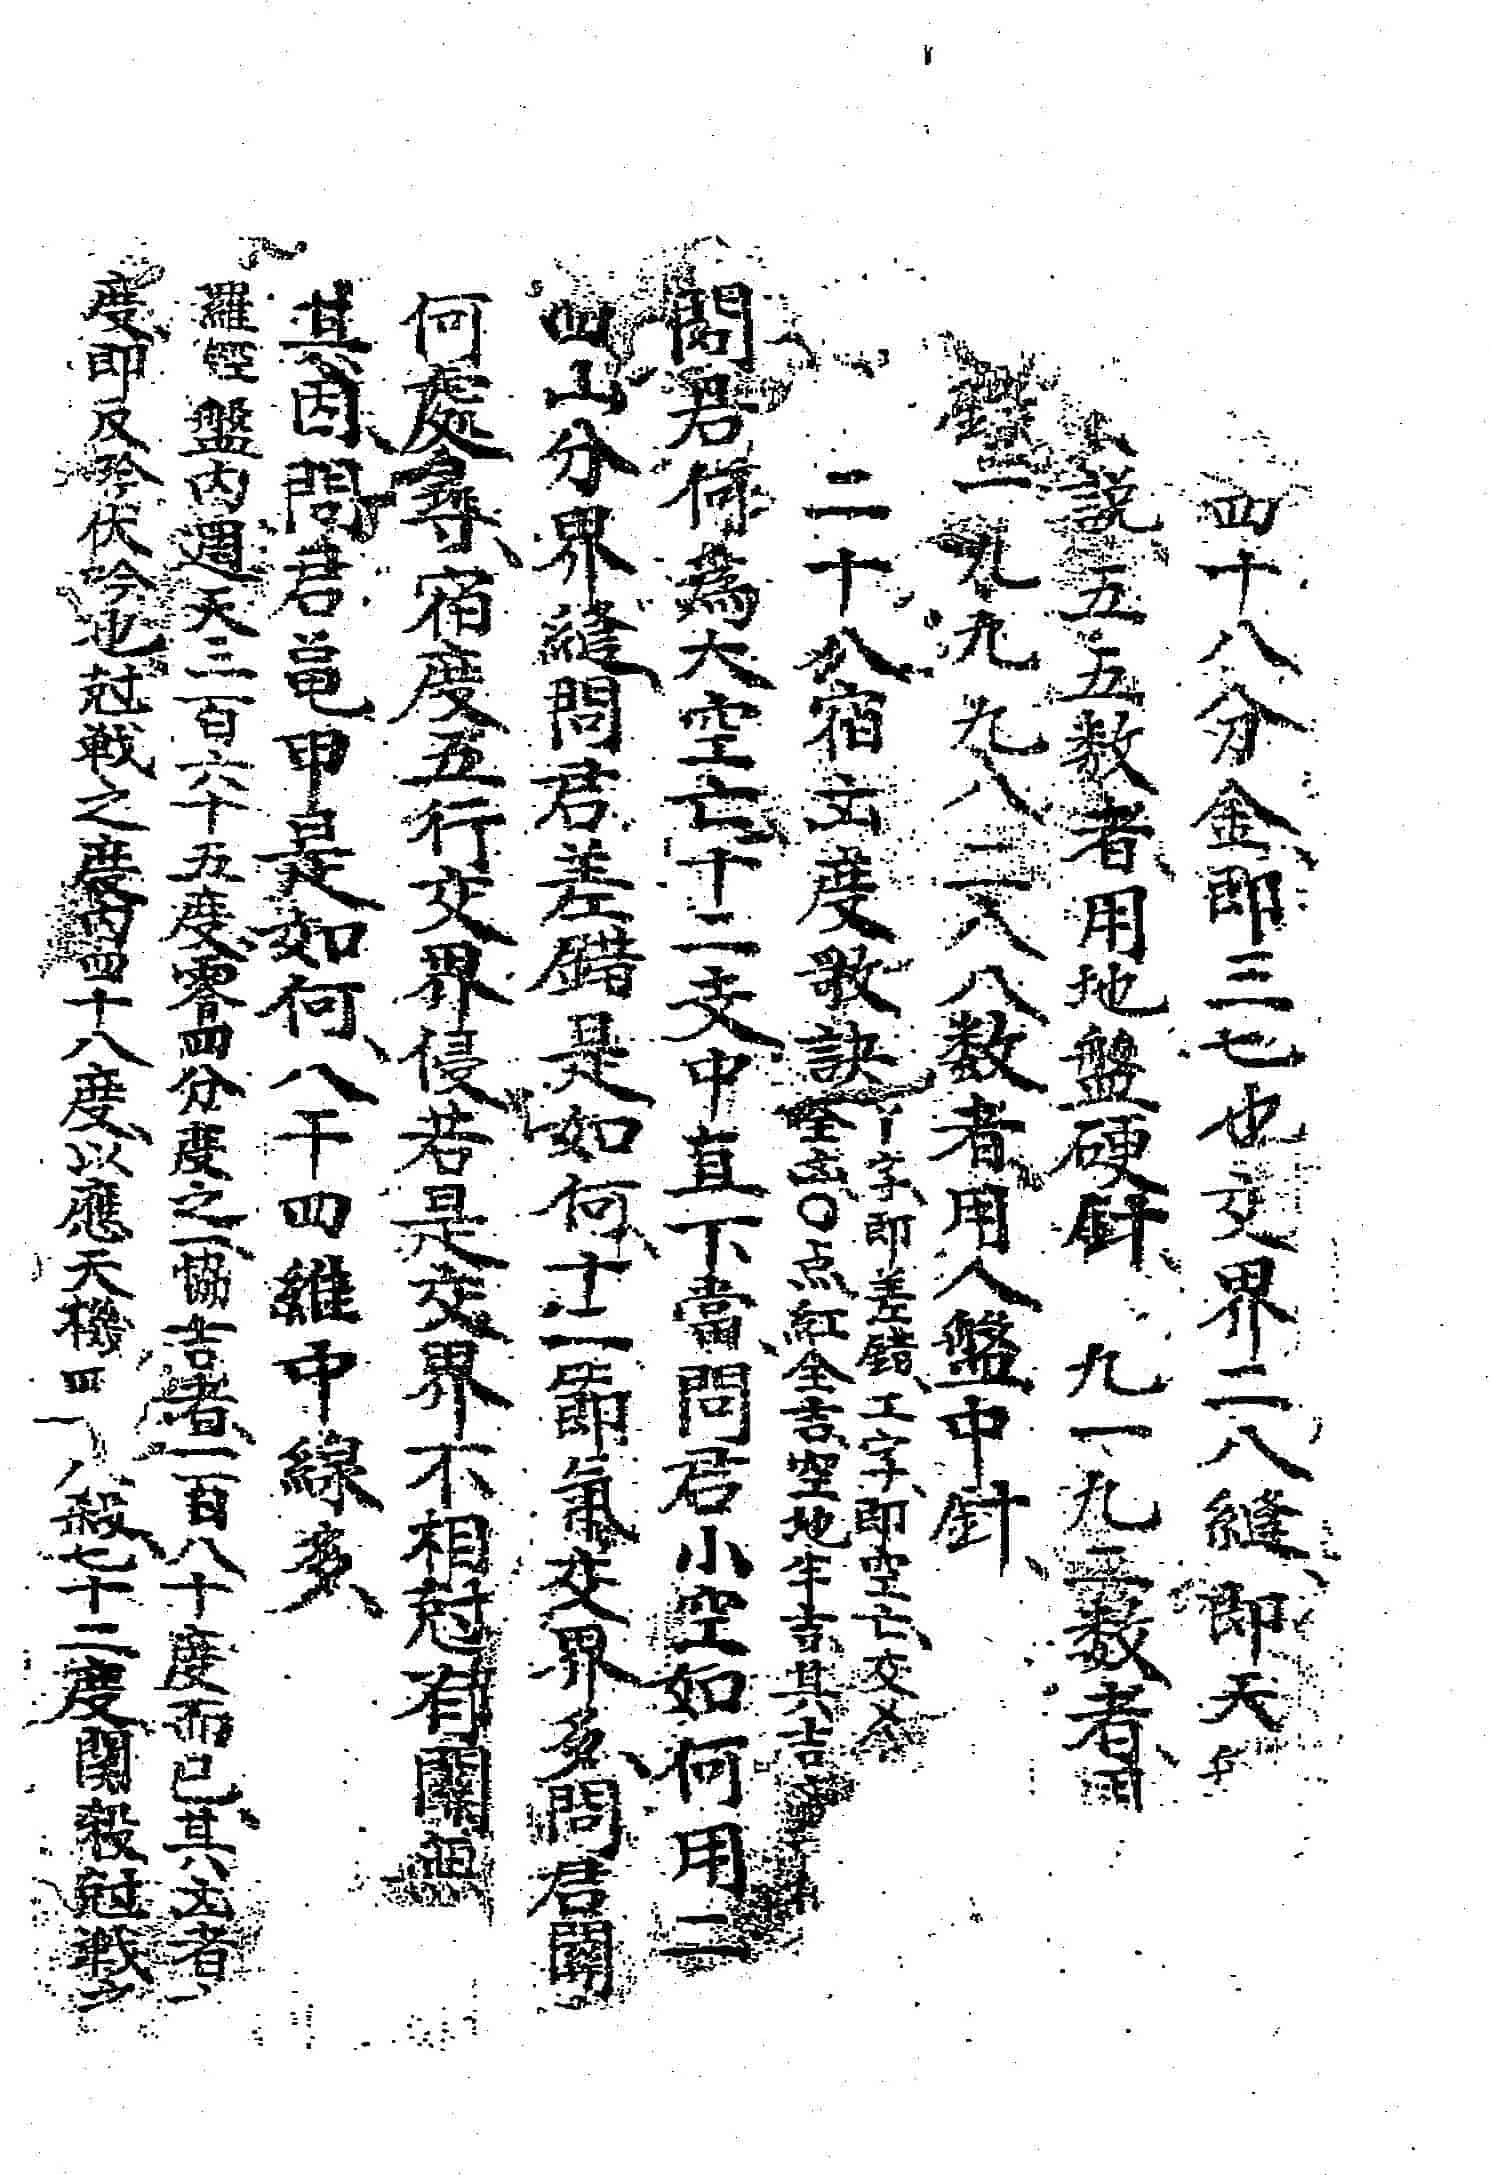 四十八分金即三七也交界二八縫即天
說五五数者用地盤硬針九一九二数者
一九九九八二八八数者用人盤中針
二十八宿立度歌訣
丫字即差錯工字即空亡交
全立〇点紅全吉空地半吉其吉
問君何為大空亡十二支中直下當問君小空如何用二
四山分界縫問君差錯是如何十二節氣交界多問君關
何處尋宿度五行交界侵若是交界不相尅有關
其因問君黽甲是如何八干四維中線多
羅經盤內週天三百六十五度零四分度之一協吉者一百八十度而已其立者
度即反吟伏吟也尅戰之度內四十八度以應天機四八殺七十二度関殺尅戰之